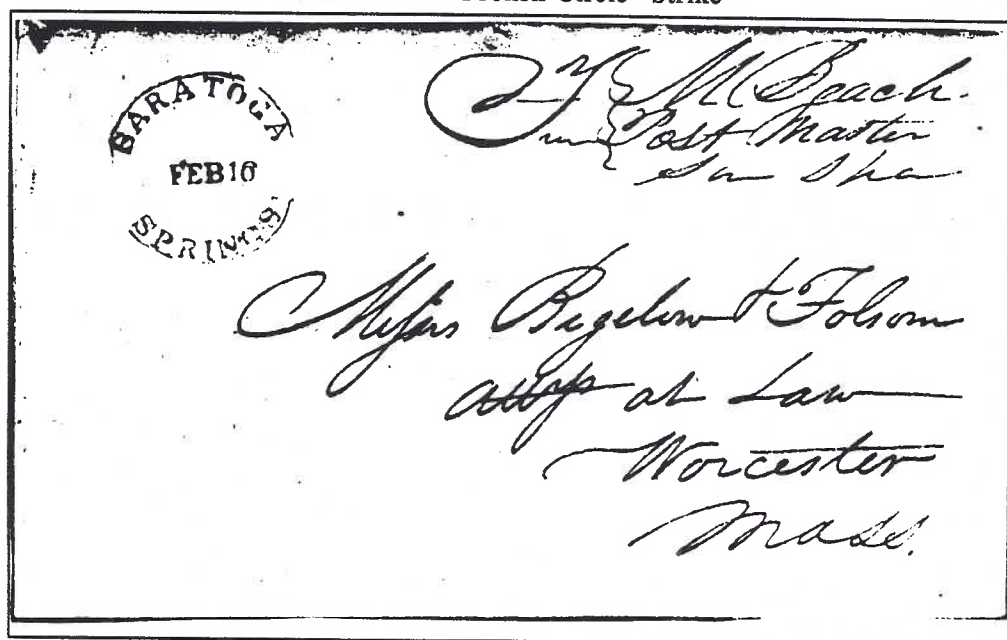 SARATOGA
FEB 16
SPRINGS
M Beach
Post Master
Messrs Bigelow & Folsom
attys at Law
Worcester
Mass.